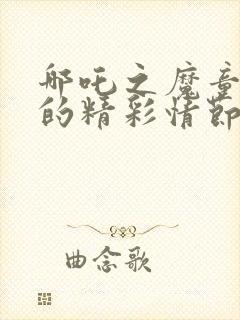 哪吒之魔童
的精彩情节
曲念歌